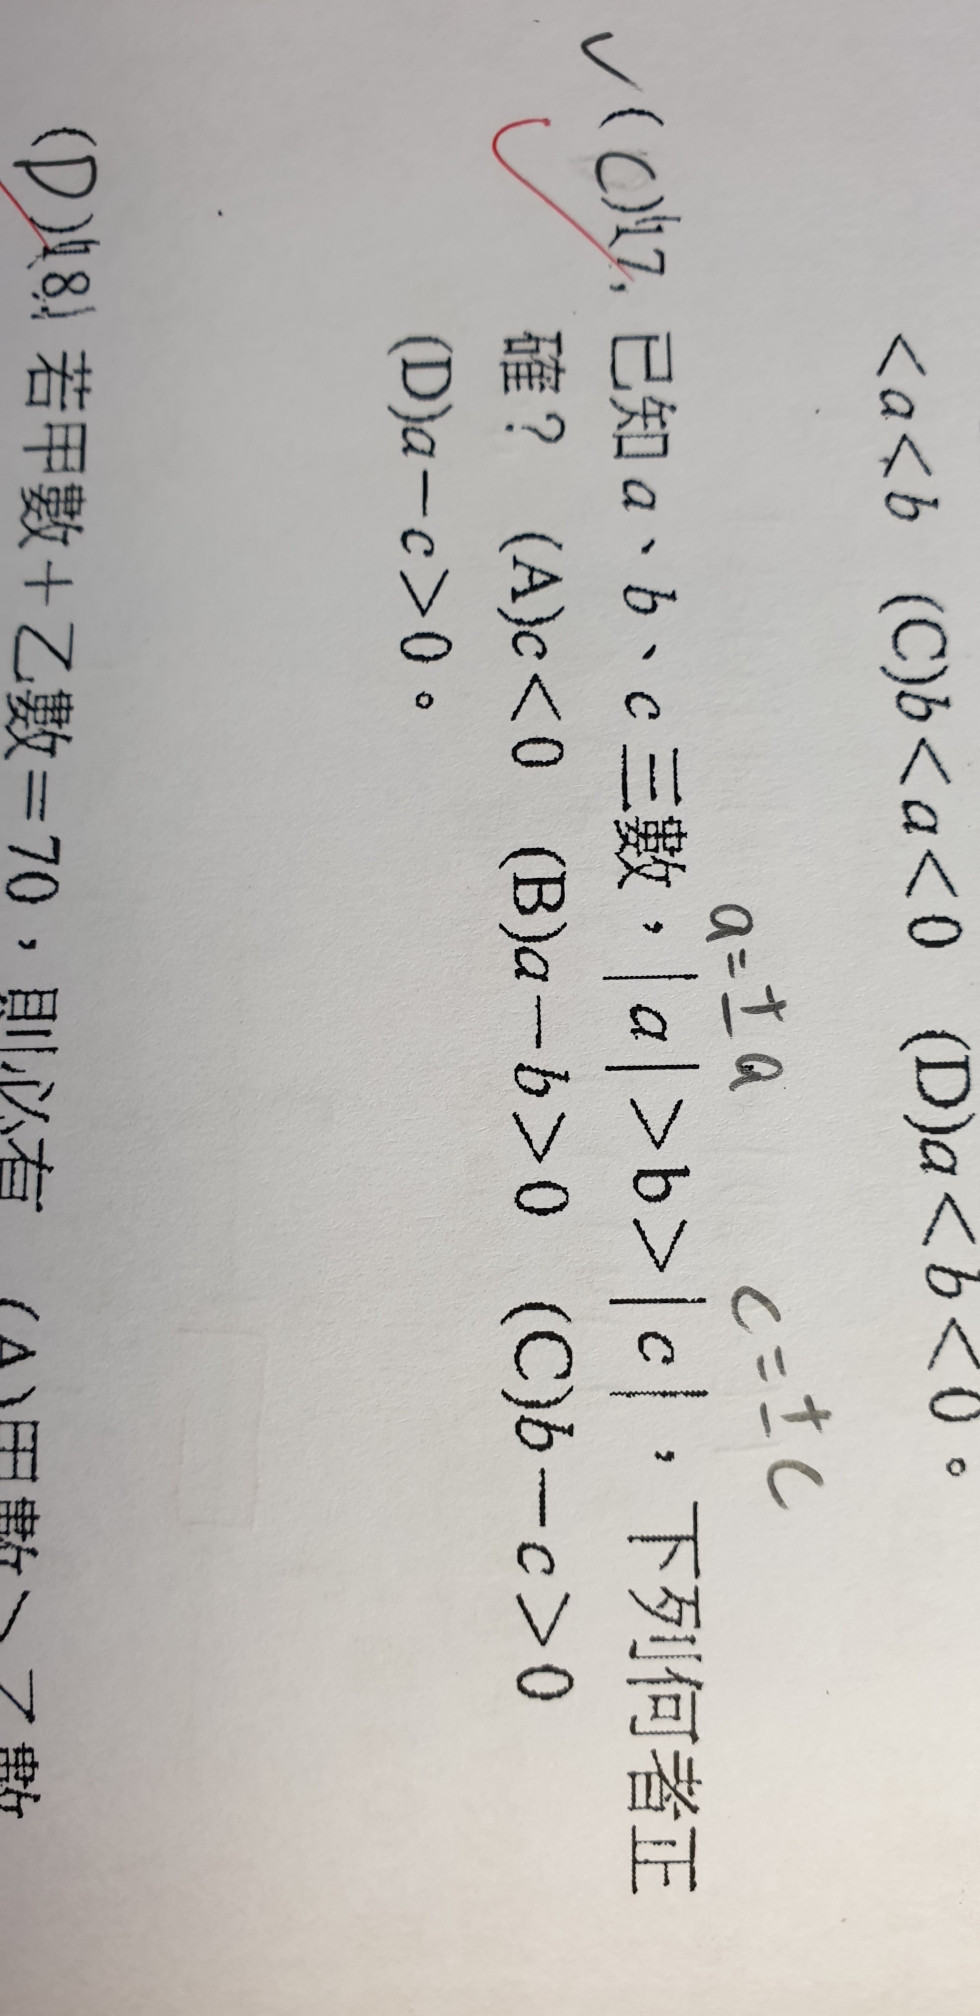 <a<b (C)b<a<0 (D)a<b<0。
a=±a c=±c
✓(C)17, 已知 a、b、c 三數，|a|>b>|c|，下列何者正
確？ (A)c<0 (B)a－b>0 (C)b－c>0
(D)a－c>0。
(D)18. 若甲數＋乙數＝70，則必有 (A)甲數＞乙數